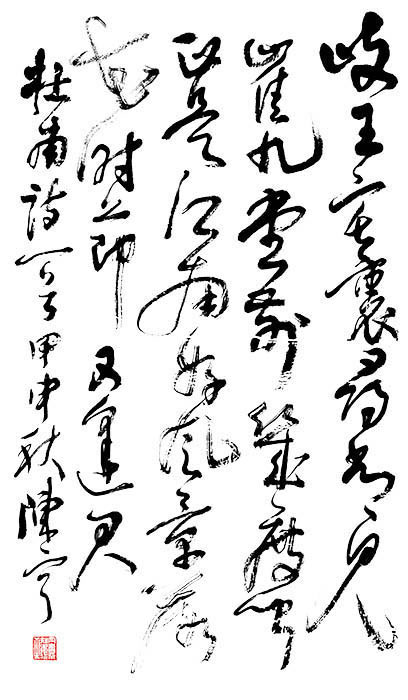 岐王宅裏尋常見
崔九堂前幾度聞
正是江南好風景落
花時節又逢君
杜甫詩一首甲申秋陳宁